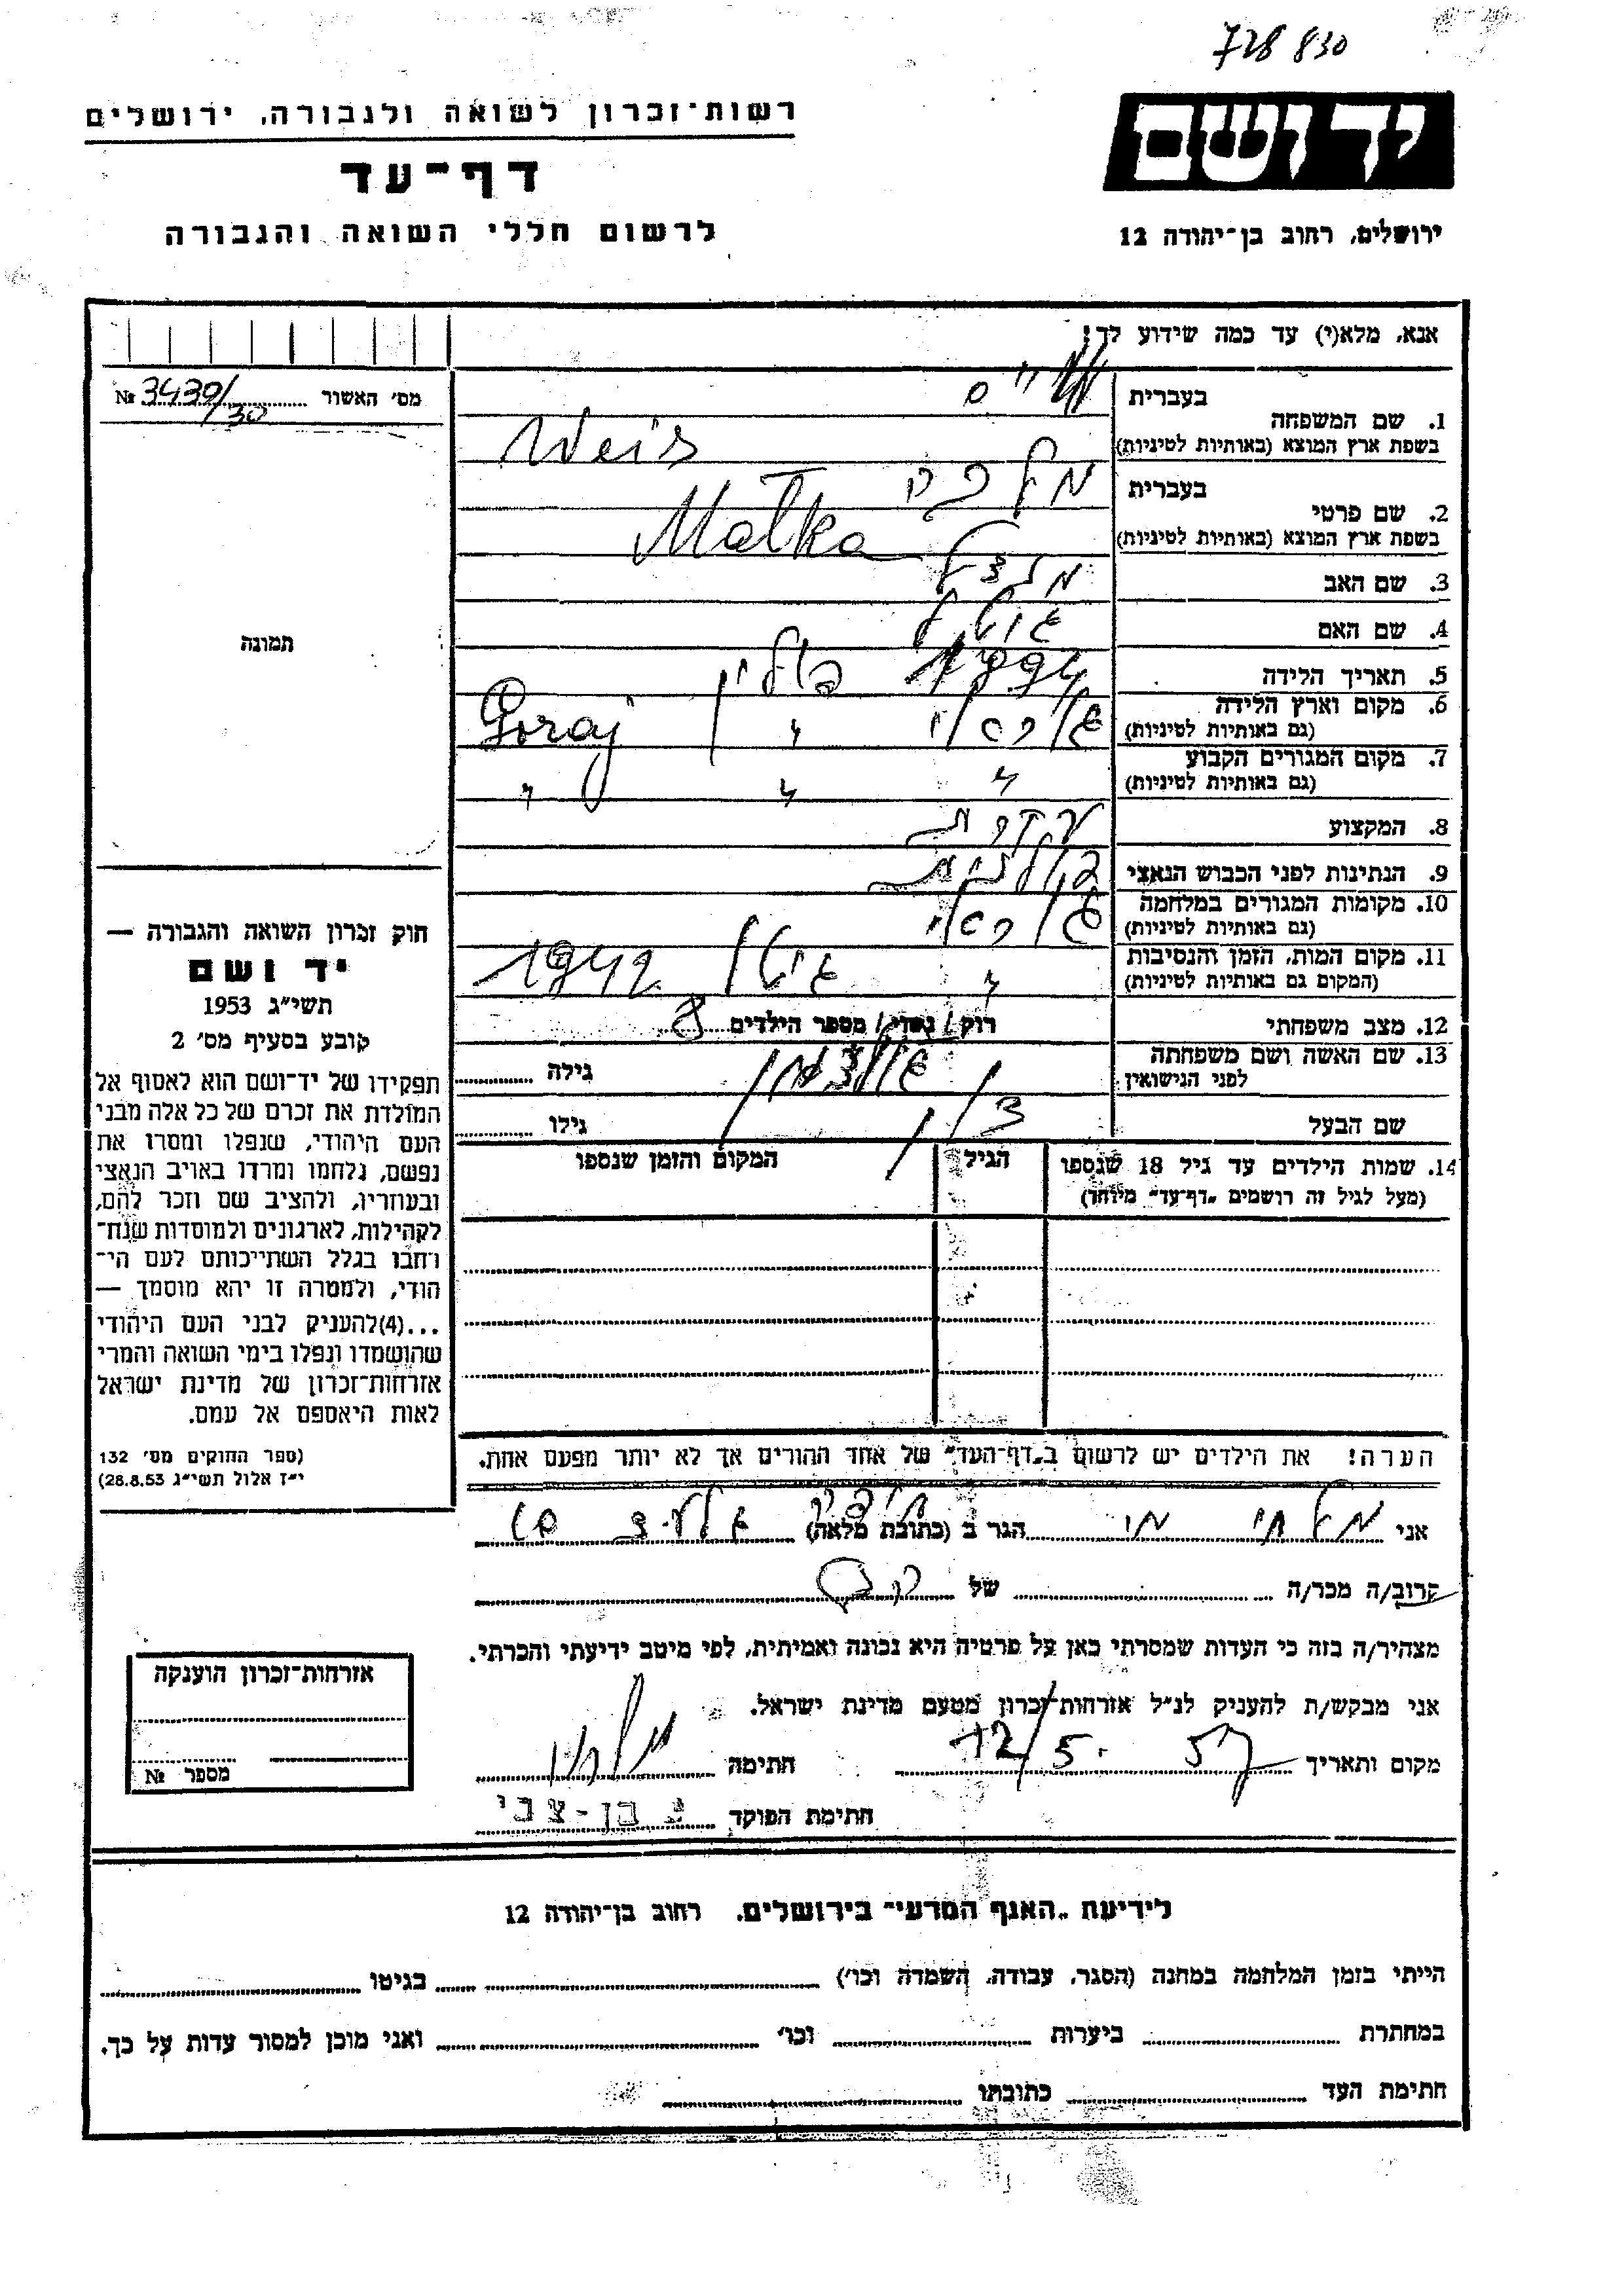 728 830
יד ושם
ירושלים, רחוב בן־יהודה 12
רשות־זכרון לשואה ולגבורה, ירושלים
דף־עד
לרשום חללי השואה והגבורה
אנא, מלא(י) עד כמה שידוע לך!
מס׳ האשור № 3439/30
תמונה
בעברית ווייס
1. שם המשפחה
בשפת ארץ המוצא (באותיות לטיניות) Weis
בעברית מלכה
2. שם פרטי
בשפת ארץ המוצא (באותיות לטיניות) Malka
3. שם האב
4. שם האם
5. תאריך הלידה
6. מקום וארץ הלידה
(גם באותיות לטיניות) Goraj
7. מקום המגורים הקבוע
(גם באותיות לטיניות) " " "
8. המקצוע
9. הנתינות לפני הכבוש הנאצי
10. מקומות המגורים במלחמה
(גם באותיות לטיניות)
11. מקום המות, הזמן והנסיבות
(המקום גם באותיות לטיניות) " 1942
12. מצב משפחתי רוק / נשוי / מספר הילדים 8
13. שם האשה ושם משפחתה
לפני הנישואין גולדמן גילה
שם הבעל גילו
14. שמות הילדים עד גיל 18 שנספו הגיל המקום והזמן שנספו
(מעל לגיל זה רושמים „דף־עד״ מיוחד)
הערה! את הילדים יש לרשום ב„דף־העד״ של אחד ההורים אך לא יותר מפעם אחת.
חוק זכרון השואה והגבורה —
יד ושם
תשי״ג 1953
קובע בסעיף מס׳ 2
תפקידו של יד־ושם הוא לאסוף אל
המולדת את זכרם של כל אלה מבני
העם היהודי, שנפלו ומסרו את
נפשם, נלחמו ומרדו באויב הנאצי
ובעוזריו, ולהציב שם וזכר להם,
לקהילות, לארגונים ולמוסדות שנח־
רחבו בגלל השתייכותם לעם הי־
הודי, ולמטרה זו יהא מוסמך —
...(4)להעניק לבני העם היהודי
שהושמדו ונפלו בימי השואה והמרי
אזרחות־זכרון של מדינת ישראל
לאות היאספם אל עמם.
(ספר החוקים מס׳ 132
י״ז אלול תשי״ג 28.8.53)
אני הגר ב (כתובת מלאה) חיפה
קרוב/ה מכר/ה של
מצהיר/ה בזה כי העדות שמסרתי כאן על פרטיה היא נכונה ואמיתית, לפי מיטב ידיעתי והכרתי.
אני מבקש/ת להעניק לנ״ל אזרחות־זכרון מטעם מדינת ישראל.
מקום ותאריך 12/5. 57 חתימה
חתימת הפוקד בן-צבי
אזרחות־זכרון הוענקה
מספר №
לידיעת „האגף המדעי״ בירושלים, רחוב בן־יהודה 12
הייתי בזמן המלחמה במחנה (הסגר, עבודה, השמדה וכו׳) בגיטו
במחתרת ביערות וכו׳ ואני מוכן למסור עדות על כך.
חתימת העד כתובתו